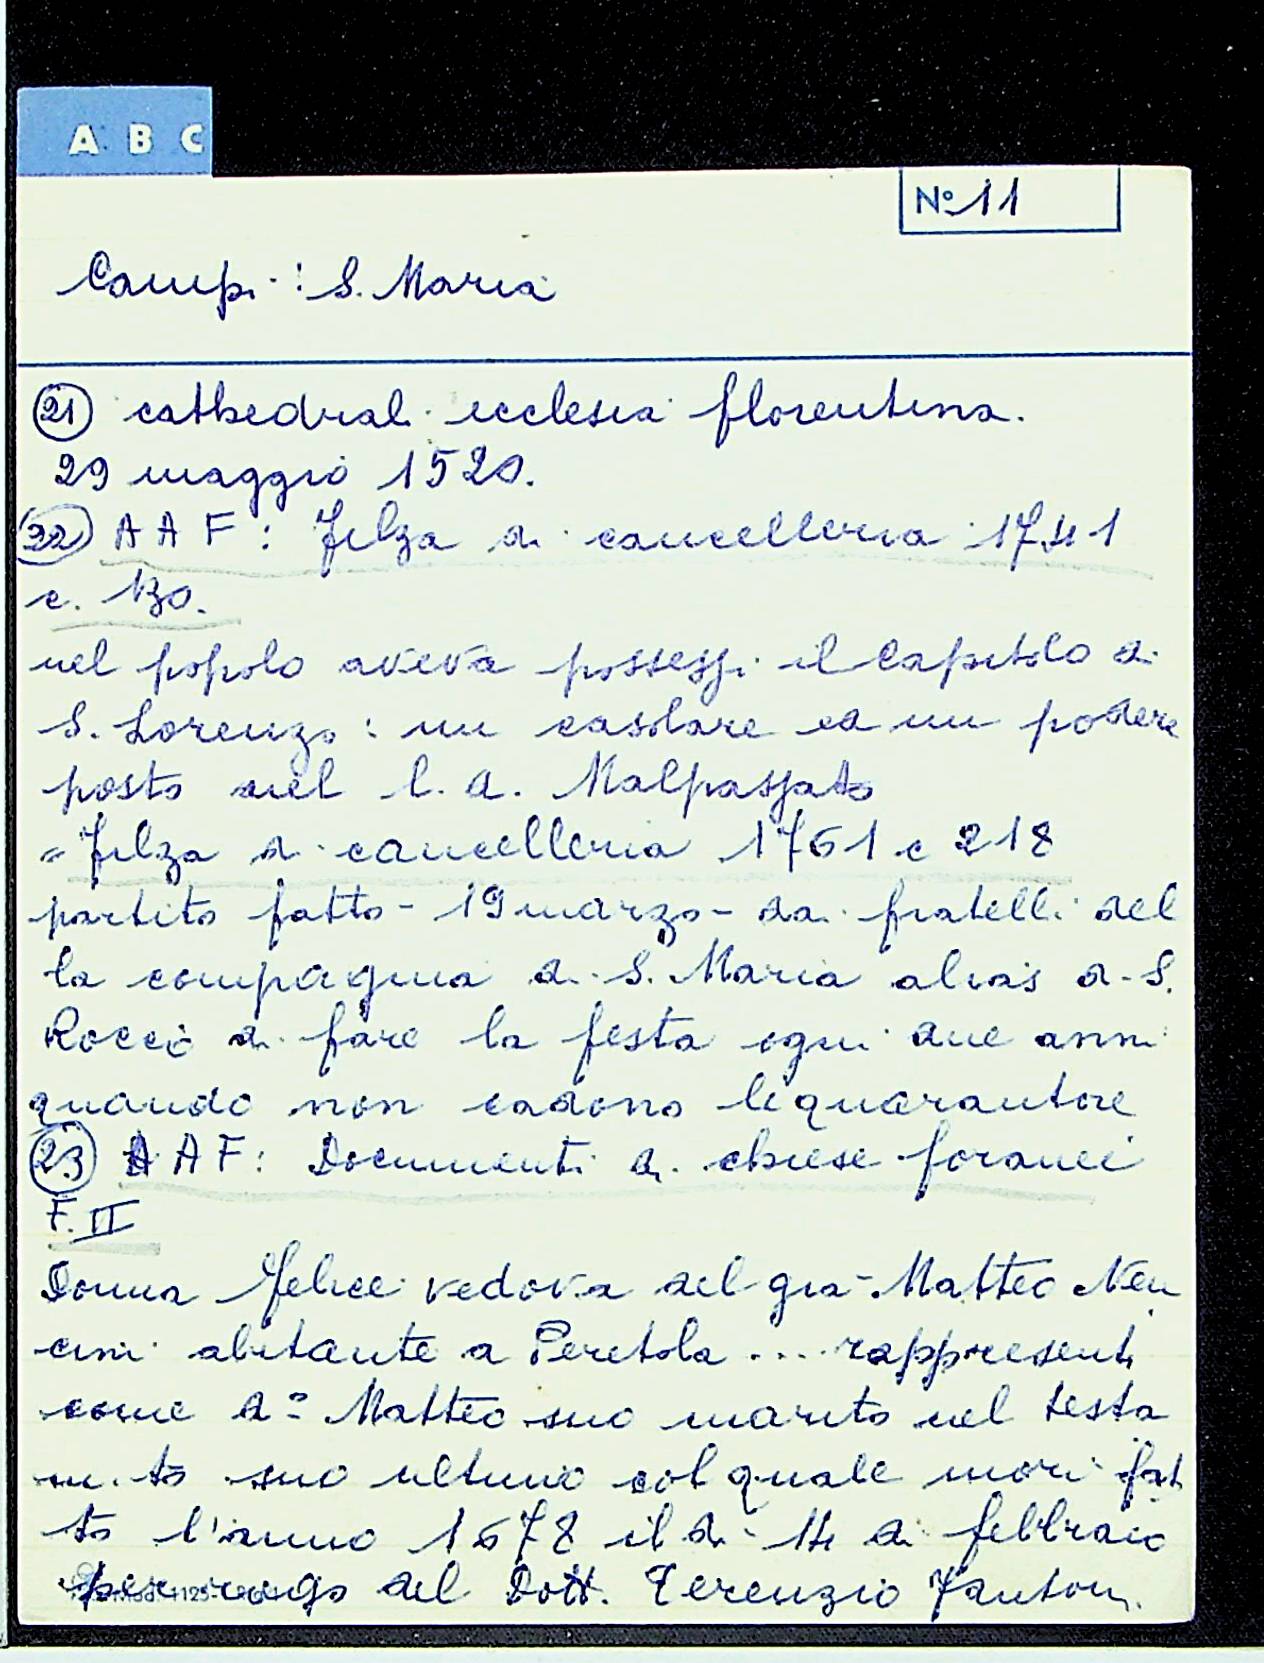 A B C
Nº 11
Campi: S. Maria
(21) cathedrali ecclesia florentina.
29 maggio 1520.
(22) A A F: Filza di cancelleria 1741
c. 130.
nel popolo aveva possessi il Capitolo di
S. Lorenzo: un casolare ed un podere
posto nel l. d. Malpassato
= Filza di cancelleria 1761 c 218
partito fatto - 19 marzo - dai fratelli del
la compagnia di S. Maria alias di S.
Rocco di fare la festa ogni due anni
quando non cadono le quarantore
(23) A A F: Documenti di chiese foranei
F. II
Donna Felice vedova del già Matteo Nen
cini abitante a Peretola .... rappresenti
come dº Matteo suo marito nel testa
m.to suo ultimo col quale morì fat
to l'anno 1678 il dì 14 di febbraio
per rogo del Dott. Terenzio Fantoni.